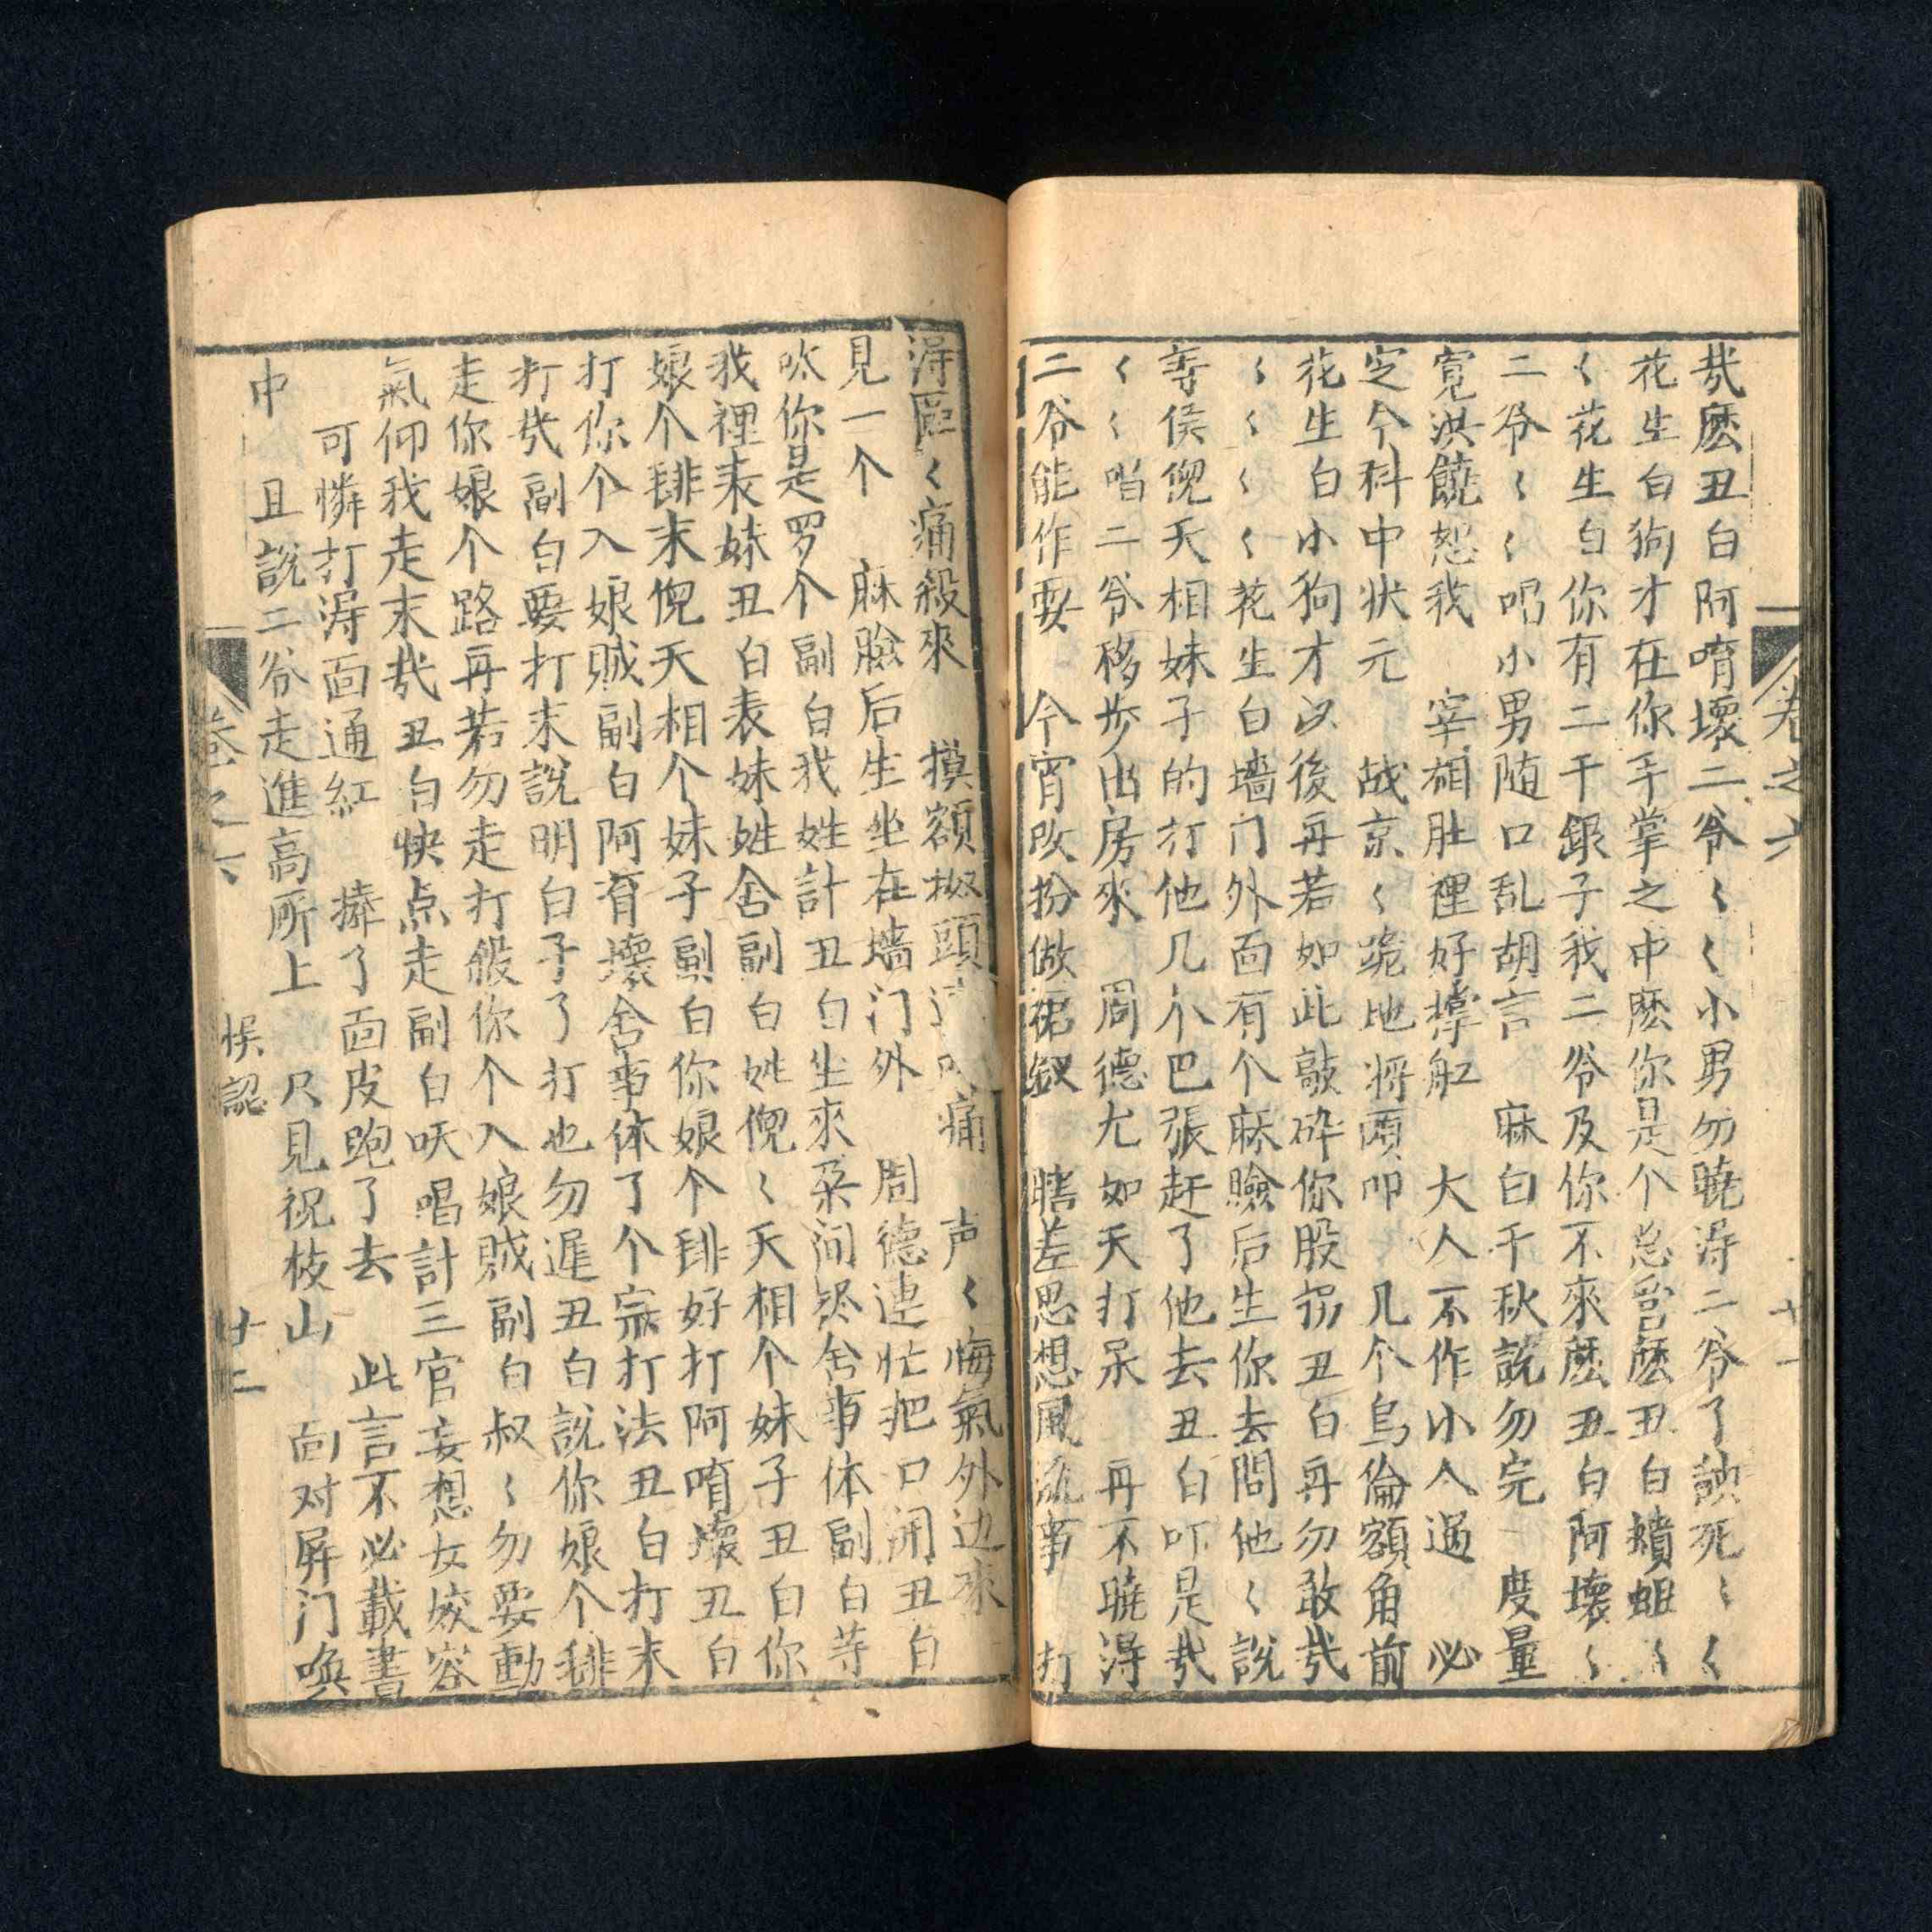 哉麽丑白阿唷壞二爷〱〱小男勿曉淂二爷了諛死〱〱
花生白狗才在你手掌之中麽你是个忘八麽丑白蟦蛆〱
〱花生白你有二干銀子我二爷及你不來麽丑白阿壞〱
二爷〱〱唱小男随口乱胡言　麻白千秋說勿完　度量
寛洪饒恕我　宰相肚裡好撑舡　大人不作小人過　必
定今科中状元　战京〱跪地将頭叩　几个烏倫額角前
花生白小狗才以後再若如此敲碎你股拐丑白再勿敢哉
〱〱〱〱花生白墙门外面有个麻臉后生你去問他〱說
等侯倪天相妹子的打他几个巴張赶了他去丑白吖是哉
〱〱唱二爷移步出房來　周德尤如天打呆　再不曉淂
二爷能作耍　今宵改扮做裙釵　瞎差思想風流事　打
淂區〱痛殺來　摸額揿頭　痛　声〱悔氣外边來
見一个　麻臉后生坐在墙门外　周德連忙把口開丑白
吹你是罗个副白我姓計丑白生來朵间终舍事体副白等
我裡表妹丑白表妹姓舍副白姓倪〱天相个妹子丑白你
娘个琲末倪天相个妹子副白你娘个琲好打阿唷壞丑白
打你个入娘贼副白阿育壞舍事体了个宗打法丑白打末
打哉副白要打末說明白子了打也勿遲丑白說你娘个琲
走你娘个路再若勿走打殺你个入娘贼副白叔〱勿要動
氣仰我走末哉丑白快点走副白呸唱計三官妄想女姣容
可憐打淂面通紅　捧了面皮跑了去　此言不必載書
中　且說二爷走進高所上　尺見祝枝山　面对屏门喚
卷之六
卷之六
悮認
廿二